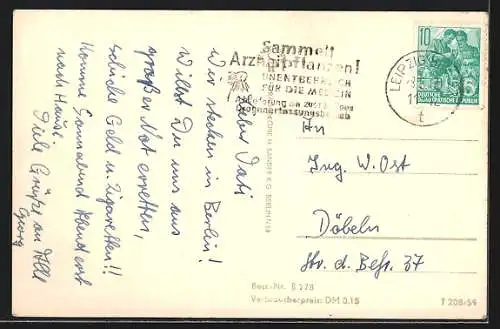 Lieber Vati
Wir stehen in Berlin!
Willst Du uns aus
großer Not erretten,
schicke Geld u. Zigaretten!!
Komme Sonnabend Abend erst
nach Hause
Viele Grüße an Alle
Georg
Sammelt
Arzneipflanzen!
UNENTBEHRLICH
FÜR DIE MEDIZIN
Ablieferung an zuständigen
Drogenerfassungsbetrieb
LEIPZIG
t
10
DEUTSCHE
DEMOKRATISCHE REPUBLIK
An
Ing. W. Ost
Döbeln
Str. d. Befr. 37
Best.-Nr. B 278
Verbraucherpreis: DM 0.15
T 208/59